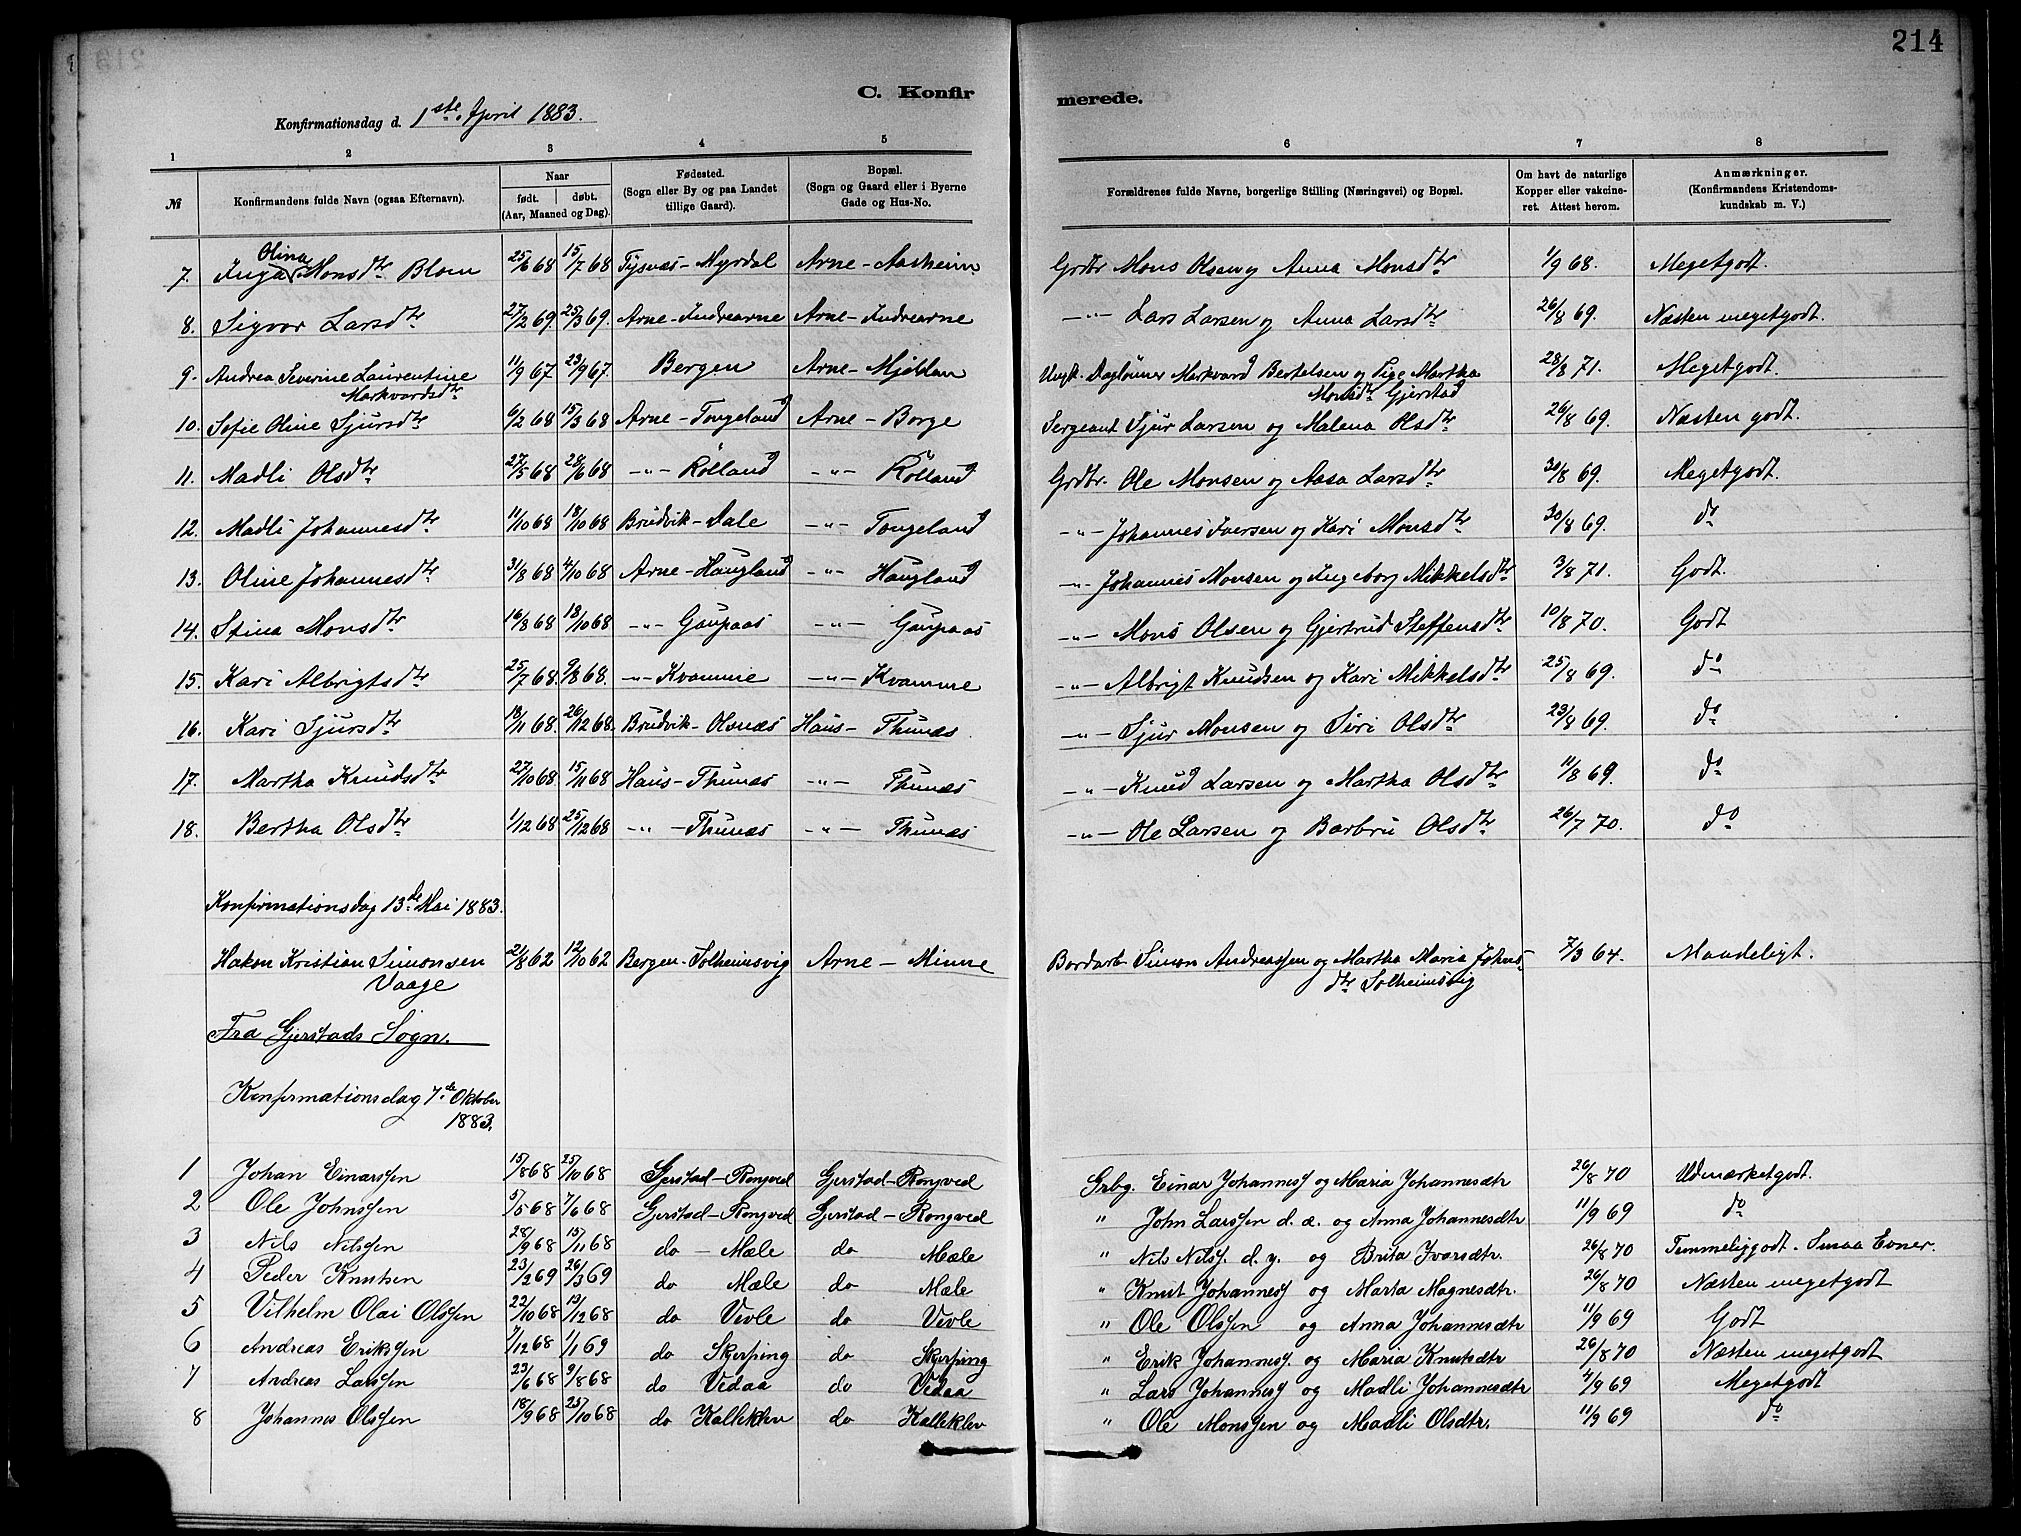 214
C. Konfir merede.
Konfirmationsdag d. 1ste April 1883.
1 2 3 4 5 6 7 8
№ Konfirmandens fulde Navn (ogsaa Efternavn). Naar født. døbt. (Aar, Maaned og Dag). Fødested. (Sogn eller By og paa Landet tillige Gaard). Bopæl. (Sogn og Gaard eller i Byerne Gade og Hus-No. Forældrenes fulde Navne, borgerlige Stilling (Næringsvei) og Bopæl. Om havt de naturlige Kopper eller vakcineret. Attest herom. Anmærkninger. (Konfirmandens Kristendomskundskab m. V.)
7. Inga Olina Monsdtr Blom 25/6 68 15/7 68 Tysnæs - Myrdal Arne - Aasheim Grdbr Mons Olsen og Anna Monsdtr 1/9 68. Megetgodt.
8. Sigvor Larsdtr 27/2 69. 25/3 69. Arne - Indrearne Arne - Indrearne -"- Lars Larsen og Anna Larsdtr 26/8 69. Næsten megetgodt.
9. Andrea Severine Laurentine Markvardsdtr 11/9 67 23/9 67. Bergen Arne - Mjeldan Ungk. Daglönner Markvard Bertelsen og Pige Martha Monsdtr Gjerstad 28/8 71. Megetgodt.
10. Sofie Oline Sjursdtr 6/2 68 15/3 68 Arne - Tongeland Arne - Borge Sergeant Sjur Larsen og Malena Olsdtr 26/8 69. Næsten godt.
11. Madli Olsdtr 27/5 68 28/6 68 -"- Rölland -"- Rölland Grdbr. Ole Monsen og Aasa Larsdtr 30/8 69. Megetgodt.
12. Madli Johannesdtr 11/10 68 18/10 68 Brudvik - Dale -"- Tongeland -"- Johannes Iversen og Kari Monsdtr 30/8 69. do
13. Oline Johannesdtr 31/8 68 4/10 68 Arne - Haugland -"- Haugland -"- Johannes Monsen og Ingeborg Mikkelsdtr 3/8 71. Godt.
14. Stina Monsdtr 16/8 68 18/10 68 -"- Gaupaas -"- Gaupaas -"- Mons Olsen og Gjertrud Steffensdtr 10/8 70. Godt
15. Kari Albrigtsdtr 25/7 68. 9/8 68. -"- Kvamme -"- Kvamme -"- Albrigt Knudsen og Kari Mikkelsdtr 25/8 69. do
16. Kari Sjursdtr 18/11 68. 26/12 68. Brudvik - Olsnæs Haus - Thunæs. -"- Sjur Monsen og Siri Olsdtr 23/8 69. do
17. Martha Knudsdtr 27/10 68. 15/11 68 Haus - Thunæs -"- Thunæs -"- Knud Larsen og Martha Olsdtr 11/8 69. do
18. Bertha Olsdtr 1/12 68 25/12 68 -"- Thunæs -"- Thunæs -"- Ole Larsen og Barbru Olsdtr 26/7 70. do
Konfirmationsdag 13de Mai 1883.
Hakon Kristian Simonsen Vaage 21/8 62 12/10 62 Bergen - Solheimsvig Arne - Minne Bordarb Simon Andreassen og Martha Maria Johns-dtr Solheimsvig 7/3 64. Maadeligt.
Fra Gjerstads Sogn.
Konfirmationsdag 7de Oktober
1883.
1 Johan Einarssen 15/8 68 25/10 68 Gjerstad - Rongved Gjerstad - Rongved Grbg. Einar Johanness og Maria Johannesdtr 26/8 70 Udmærketgodt.
2 Ole Johnssen 5/5 68 7/6 68 Gjerstad - Rongved Gjerstad - Rongved " John Larssen d. æ. og Anna Johannesdtr 11/9 69 do
3 Nils Nilssen 28/9 68 15/11 68 do - Mæle do Mæle " Nils Nilss. d. y. og Brita Ivarsdtr. 26/8 70 Temmeliggodt. Smaa Evner.
4 Peder Knutsen 23/2 69 26/3 69 do Mæle do Mæle " Knut Johanness og Marta Magnesdtr. 26/8 70 Næsten megetgodt
5 Vilhelm Olai Olssen 22/10 68 13/12 68 do Vevle do Vevle " Ole Olssen og Anna Johannesdtr 11/9 69 Godt
6 Andreas Erikssen 7/12 68 1/1 69 do Skjerping do Skjerping " Erik Johanness. og Maria Knutsdtr 26/8 70 Næsten megetgodt
7 Andreas Larssen 23/6 68 9/8 68 do Vedaa do Vedaa " Lars Johanness og Madli Johannesdtr 4/9 69 Megetgodt
8 Johannes Olssen 18/9 68 25/10 68 do Kalleklev do Kalleklev " Ole Monssen og Madli Olsdtr. 11/9 69 do